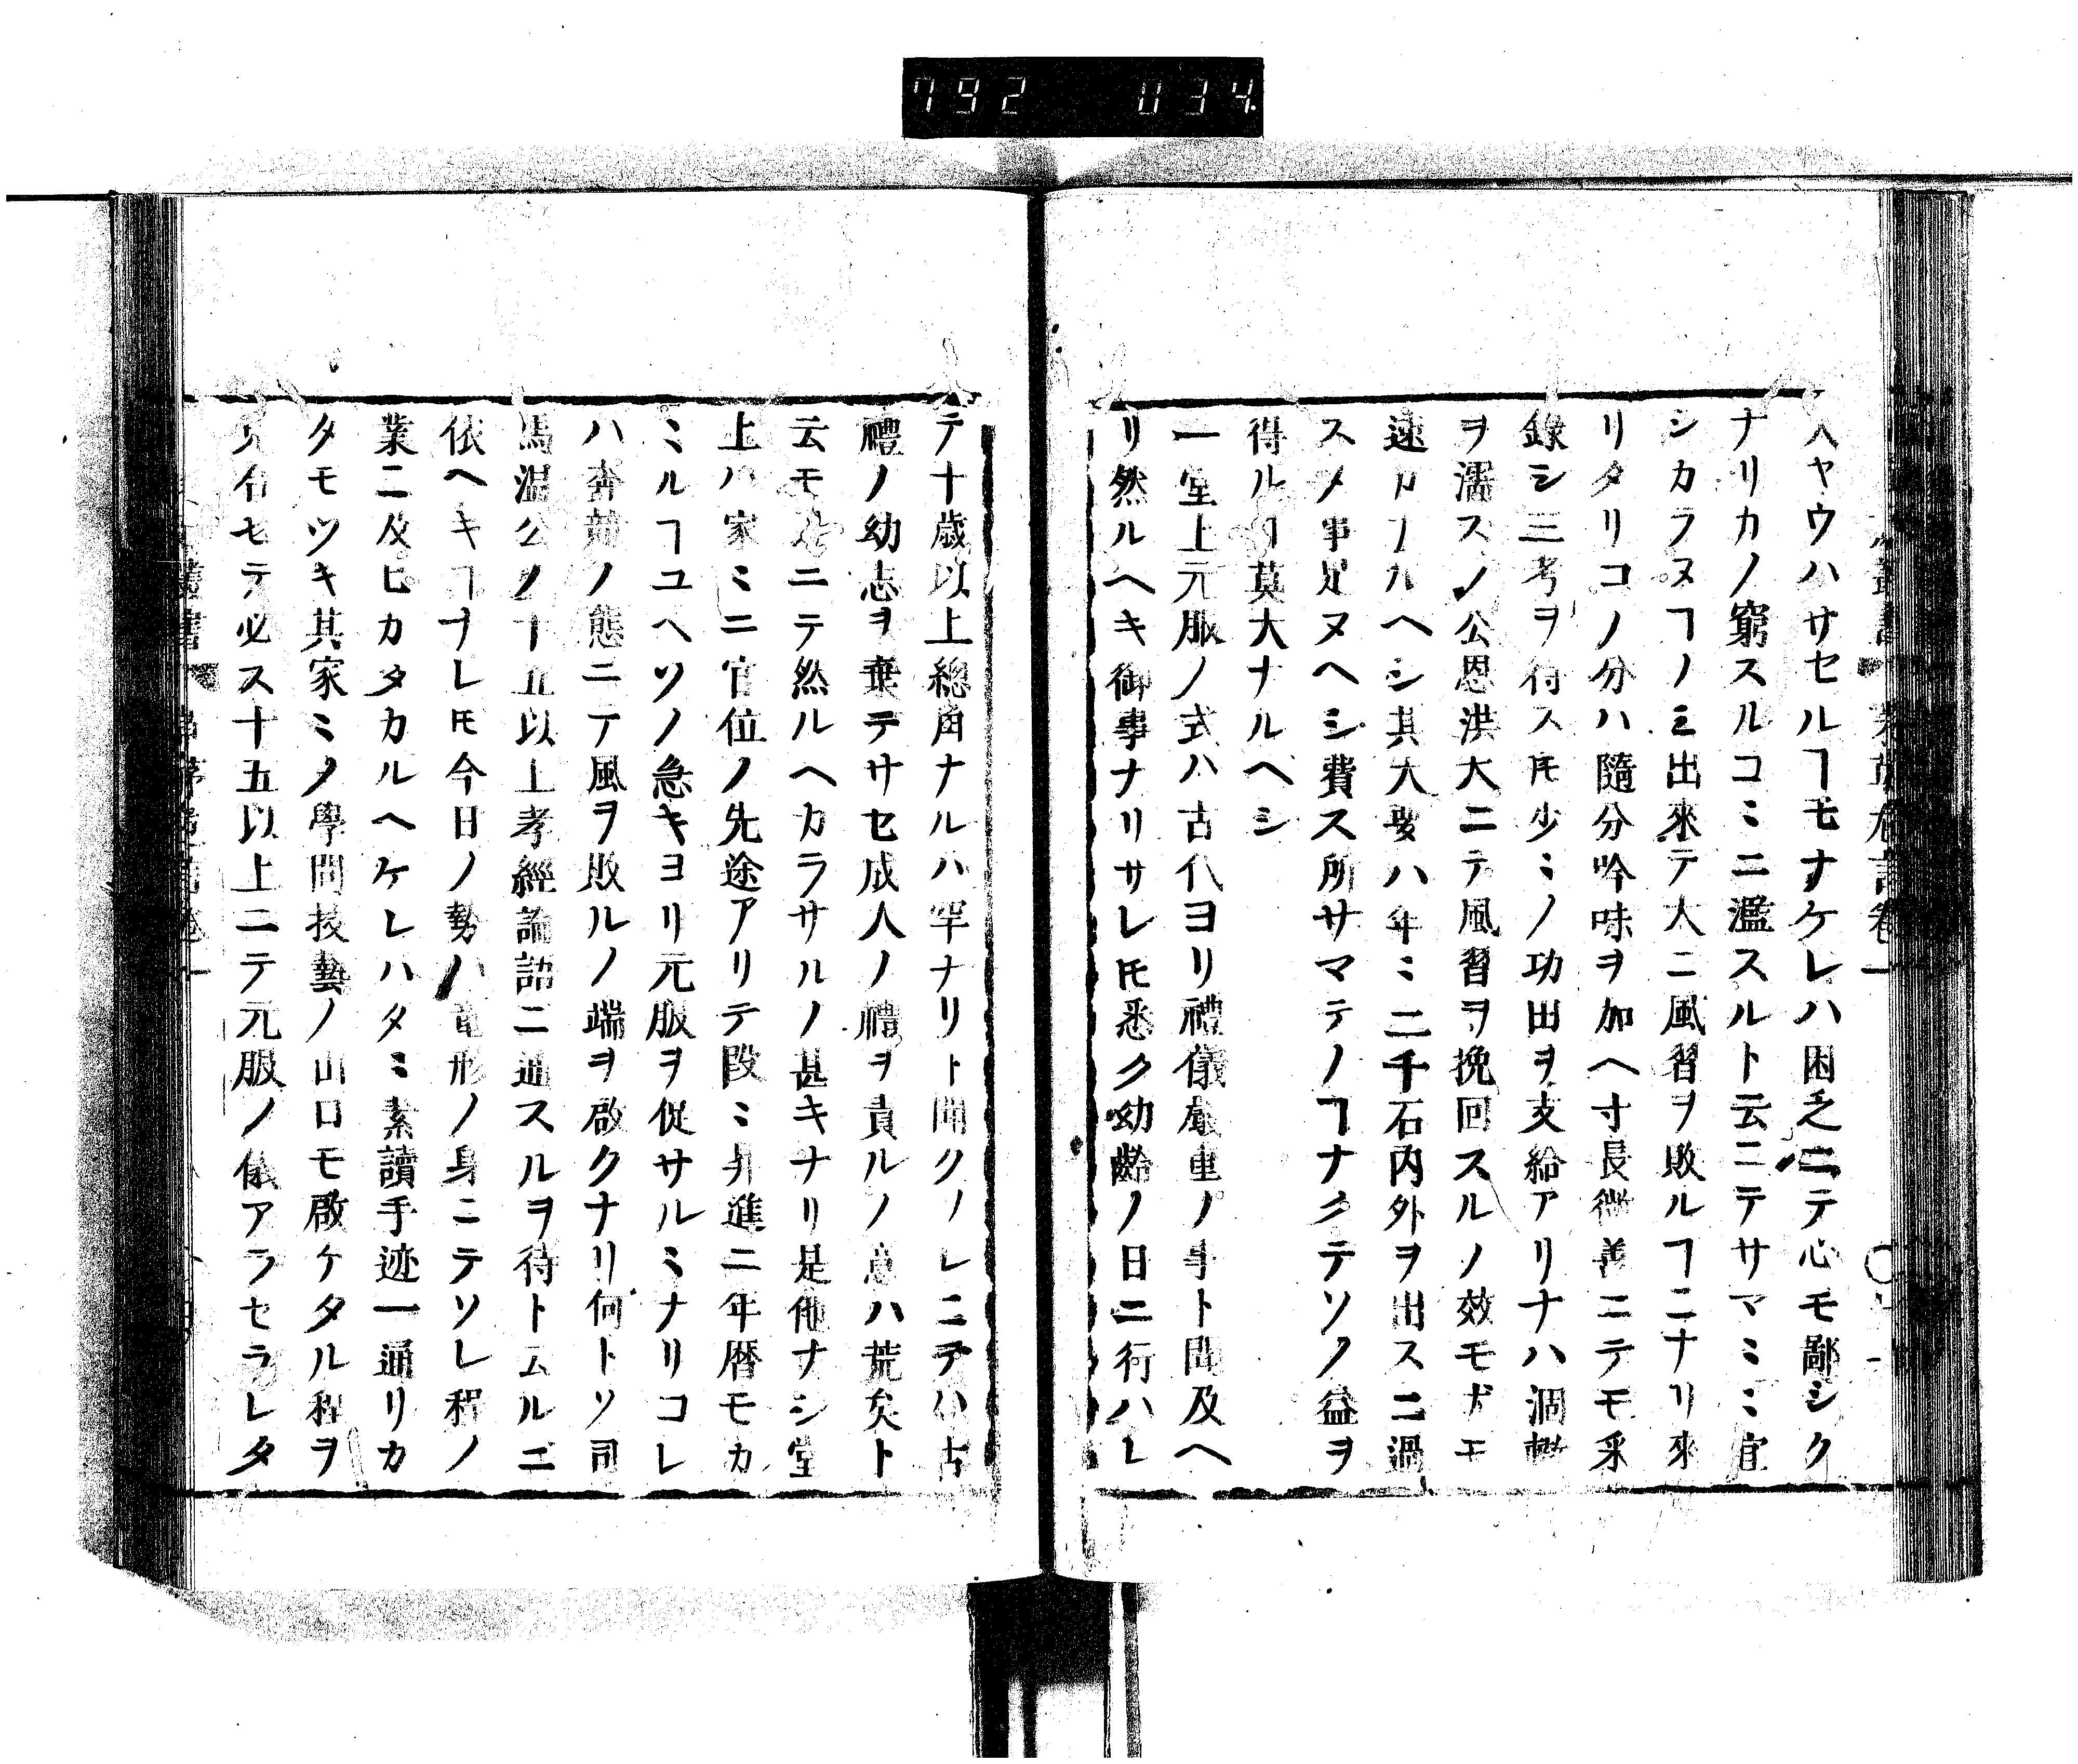 792 034
ヘヤウハサセルヿモナケレハ困乏ニテ心モ鄙シク
ナリカノ窮スルコミニ濫スルト云ニテサマミミ宜
シカラヌヿノミ出來テ大ニ風習ヲ敗ルヿニナリ來
リタリコノ分ハ隨分吟味ヲ加ヘ寸長微善ニテモ采
錄シ三考ヲ待スㇳモ少ミノ功田ヲ支給アリナハ涸轍
ヲ濡スノ公恩洪大ニテ風習ヲ挽回スルノ效モ尤モ
速カナルヘシ其大要ハ年ミ二千石内外ヲ出スニ過
スノ事足ヌヘシ費ス所サマテノヿナクテソノ益ヲ
得ルヿ莫大ナルヘシ
一堂上元服ノ式ハ古代ヨリ禮儀嚴重ノ事ト聞及ヘ
リ然ルヘキ御事ナリサレㇳモ悉ク幼齡ノ日ニ行ハレ
テ十歲以上總角ナルハ罕ナリト聞クソレニテハ古
禮ノ幼志ヲ棄テサセ成人ノ禮ヲ責ルノ意ハ荒矣ト
云モ ニテ然ルヘカラサルノ甚キナリ是他ナシ堂
上ハ家ミニ官位ノ先途アリテ段ミ昇進ニ年曆モカ
ミルヿユヘソノ急キヨリ元服ヲ促サルミナリコレ
ハ奔競ノ態ニテ風ヲ敗ルノ端ヲ啟クナリ何トソ司
馬溫公ノ十五以上孝經論語ニ通スルヲ待トムルニ
依ヘキヿナレㇳモ今日ノ勢ハ 形ノ身ニテソレ程ノ
業ニ及ヒカタカルヘケレハタミ素讀手迹一通リカ
タモツキ其家ミノ學問技藝ノ山口モ啟ケタル程ヲ
見合セテ必ス十五以上ニテ元服ノ儀アラセラレタ